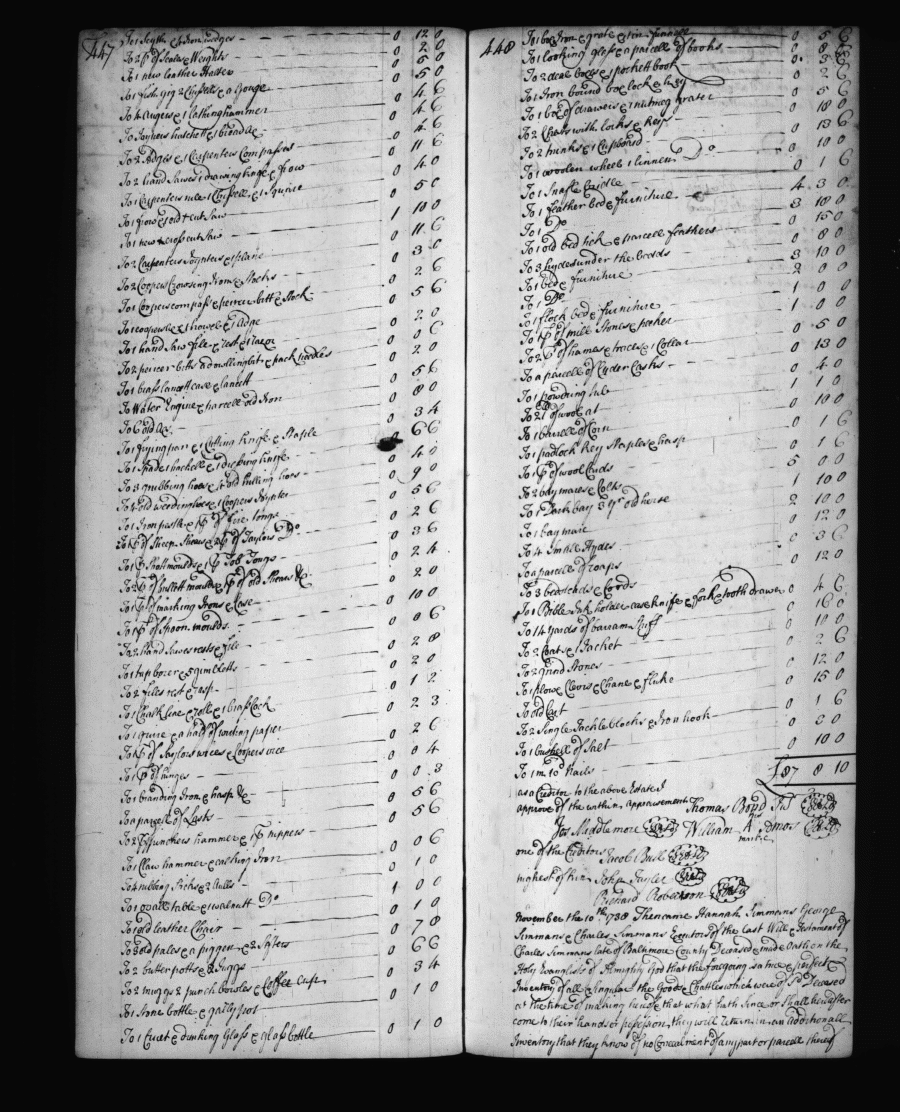 447
To 1 Scyth & 4 Iron wedges - 0 12 0
To 2 pr of Scales & Weights - 0 2 0
To 1 new leather Halter 0 5 0
To 1 fish gig 2 Chissells & a Gouge 0 5 0
To 4 augers & 1 lathinghammer 0 4 6
To Joyners hatchett & broad ax 0 4 6
To 2 Adges & 1 Carpenters Compasses 0 4 6
To 2 hand Sawes 1 drawing knife & frow 0 11 6
To 1 Carpenters rule 1 Chissell & 1 Square 0 4 0
To 1 frow & 1 old tent Saw 0 5 0
To 1 new & cross cut Saw 1 10 0
To 2 Carpenters Joynters & 1 plane 0 11 6
To 2 Coopers Crowsing Irons & Stocks 0 3 0
To 1 Coopers compass & peircer bitt & Stock 0 2 6
To 1 coopers ax & 1 howel & 1 Adge 0 5 6
To 1 hand Saw file & rest & 1 razor 0 2 0
To 2 peircer bitts & dowlling bit & pack needles 0 0 6
To 1 brass lancett case & lancett 0 2 0
To Water Engine & parcell old Iron 0 5 6
To 6 old axs 0 8 0
To 1 frying pan & 1 Cutting knife & Staple 0 3 4
To 1 Spade 1 hackell & 1 Drawing knife 0 6 6
To 3 grubbing hoes & 5 old hilling hoes 0 4 0
To 4 old weeding hoes & 1 Coopers Joynter 0 9 0
To 1 Iron pestle & 1 pr of fire tongs 0 5 6
To 1 pr of Sheep Shears & 2 pr of Taylors Do 0 2 6
To 1 pr Shott moulds & 1 pr Tobo Tongs 0 3 6
To 2 pr of bullett moulds & 1 pr of old Shears &c 0 2 4
To 1 pr of marking Irons & Case 0 2 0
To 1 pr of Spoon moulds 0 10 0
To 2 hand Sawes rests & file 0 0 6
To 1 tap borer & 5 gimbletts 0 2 8
To 2 files rest & rasp 0 2 0
To 1 Chalk line & role & 1 brass Cock 0 1 2
To 1 quire & a half of writing paper 0 2 3
To 1 pr of Taylors vices & Coopers vice 0 2 6
To 1 pr of hinges 0 0 4
To 1 branding Iron & hasp &c 0 0 3
To a parcell of Lasts 0 5 6
To 2 hammers & 1 pr nippers 0 5 6
To 1 Claw hammer & caulking Iron 0 0 6
To 4 rubbing Bricks & 2 Aulls 0 1 0
To 1 ovall table & 1 walnutt Do 1 0 0
To 1 old leather Chair 0 1 0
To 3 old pales & a piggen & 2 Sifters 0 7 8
To 2 butter potts & 2 Juggs 0 6 6
To 2 muggs 2 punch bowles & Coffee Cups 0 3 4
To 1 Stone bottle & gally pot 0 1 0
To 1 Cruet & drinking Glass & glass bottle 0 1 0
448
To 1 box Iron & grate & 1 tin funnell 0 5 6
To 1 looking glass & a parcell of books 0 8 6
To 2 deal boxes & 1 pockett book 0 3 6
To 1 Iron bound box lock & key 0 2 6
To 1 box of drawers & nutmeg grater 0 5 6
To 2 Chests with locks & keys 0 18 0
To 2 trunks & 1 Cupboard 0 13 6
To 1 woolen wheel 1 linnen Do 0 10 0
To 1 Snafle bridle 0 1 6
To 1 feather bed & furniture 4 3 0
To 1 Do 3 10 0
To 1 old bed tick & parcell feathers 0 15 0
To 3 hydes under the bedds 0 8 0
To 1 bed & furniture 3 10 0
To 1 Do 2 0 0
To 1 flock bed & furniture 1 0 0
To 1 pr of mill Stones & pecker 1 0 0
To 2 pr of hames & traces & 1 Collar 0 5 0
To a parcell of Cyder Casks 0 13 0
To 1 powdering tub 0 4 0
To of wool at 1 1 0
To 1 barrell of Corn 0 10 0
To 1 padlock Key Staples & hasp 0 1 6
To 1 pr of wool Cards 0 1 6
To 2 bay mares & Colts 5 0 0
To 1 Dark bay 3 yr old horse 1 10 0
To 1 bay mare 2 10 0
To 4 Small Hydes 0 12 0
To a parcell of soap 0 3 6
To 3 bedsteads & Cords 0 12 0
To 1 Bible Ink holder case knife & fork & tooth drawer 0 4 6
To 14 yards of barram Stuff 0 16 0
To 2 Coats & 1 Jacket 0 10 0
To 2 grind Stones 0 2 6
To 1 plow & Clevis & Chane & fluke 0 12 0
To old Cart 0 15 0
To 2 Single Tackle blocks & Iron hook 0 1 6
To 1 bushell of Salt 0 2 0
To 1 m 10d Nails 0 10 0
£87 8 10
as a Creditor to the above Estate I
approve of the within appraisement Thomas Boyd Junr Seal
Jos Middlemore Seal William A Demos Seal
his
marke
one of the Creditors Jacob Bull Seal
nighest of kin John Taylor Seal
Richard Robertson Seal
November the 10th 1738 Then came Hannah Simmans George
Simmans & Charles Simmans Executors of the Last Will & Testament of
Charles Simmans late of Baltimore County Deceased & made Oath on the
Holy Evangelists of Almighty God that the foregoing is a true & perfect
Inventory of all & Singular the Goods & Chattles which were of sd Deceased
at the time of making thereof & that what hath Since or Shall hereafter
come to their hands or possession they will return in an additionall
Inventory that they know of no Concealment of any part or parcell thereof